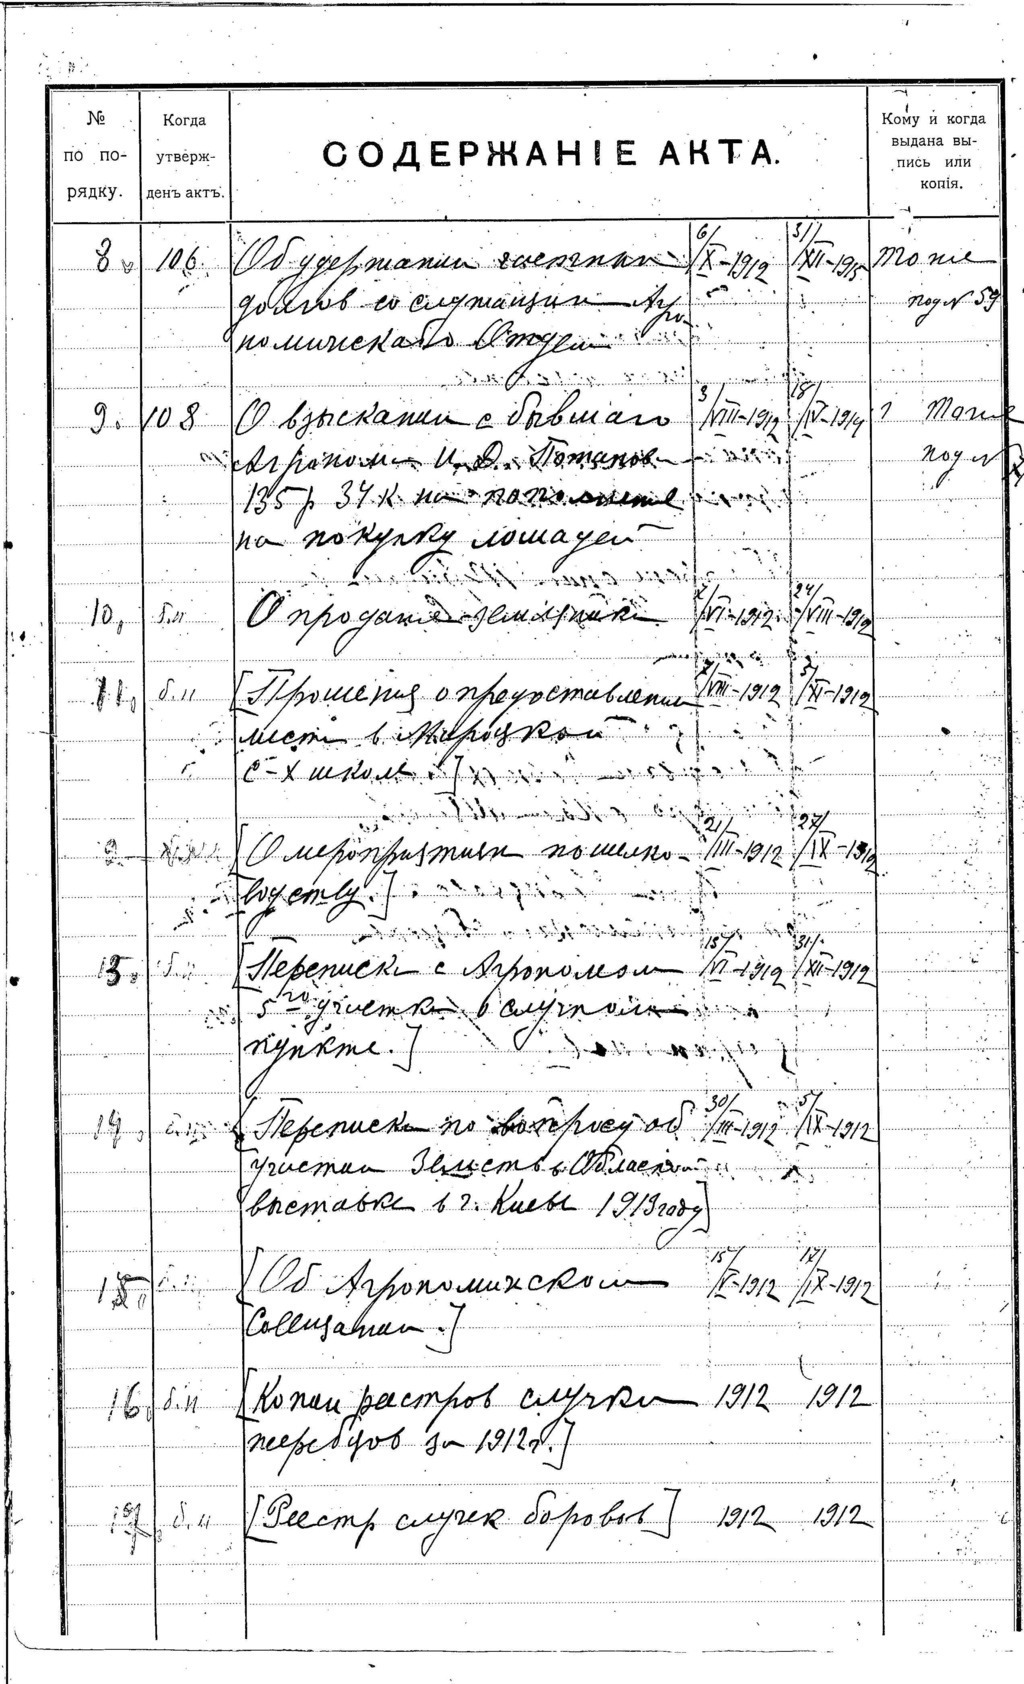 № по по-рядку.
Когда утверж-денъ актъ.
СОДЕРЖАНІЕ АКТА.
Кому и когда выдана вы-пись или копія.
8. 106. Об удержании частных 6/X-1912 31/XII-1915 Тоже
долгов со служащих Агро- под № 59
номическаго Отдела
9. 108 О взыскании с бывшаго 3/VIII-1912 18/IV-1914 Тоже
Агронома И. Д. Потапова под №
135 р 34 к на
на покупку лошадей
10, б.н О продаже землянике VI-1912. 24/VIII-1912
11, б.н [Прошения о предоставлении 2/VIII-1912 5/XI-1912
места в
с-х школе.]
[О мероприятиях по шелко- 21/III-1912 27/IX-1912
водству.]
13. б.н [Переписка с Агрономом 15/VI-1912 31/XII-1912
5го участка о случном
пункте.]
14, б.н. [Переписка по вопросу об 30/III-1912 5/IX-1912
участии Земства в Област.
выставке в г. Киеве 1913 году]
15, б.н [Об Агрономическом 15/V-1912 17/IX-1912
Совещании.]
16. б.н [Копии реестров случки 1912 1912
жеребцов за 1912 г.]
17, б.н [Реестр случек боровов] 1912 1912